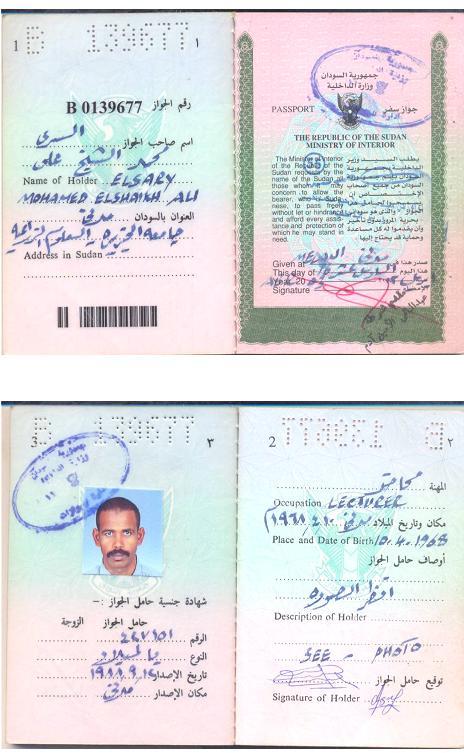 1 B 139677 ١
رقم الجواز B 0139677
اسم صاحب الجواز السري
محمد الشيخ علي
Name of Holder ELSARY
MOHAMED ELSHAIKH ALI
العنوان بالسودان مدني
جامعة الجزيرة العلوم الزراعية
Address in Sudan
جمهورية السودان
وزارة الداخلية
PASSPORT جواز سفر
THE REPUBLIC OF THE SUDAN
MINISTRY OF INTERIOR
The Minister of Interior
of the Republic of the
Sudan requests by the
name of the Sudan all
those whom it may
concern to allow the
bearer, who is Sudanese,
to pass freely
without let or hindrance
and afford every assistance
and protection of
which he may stand in
need.
يطلب السيد وزير
السودان من جميع أصحاب
بحرية المرور بدون تأخير
وأن يقدموا له كل مساعدة
وحماية قد يحتاج إليها.
Given at MEDANI
This day of
Year 20
Signature
3 B 139677 ٣
شهادة جنسية حامل الجواز :-
حامل الجواز الزوجة
الرقم ٤٤٧١٥١
النوع بالميلاد
تاريخ الإصدار
مكان الإصدار مدني
2 B 139677 ٢
المهنة محاضر
Occupation LECTURER
مكان وتاريخ الميلاد مدني
Place and Date of Birth 10.4.1968
أوصاف حامل الجواز
أنظر الصورة
Description of Holder
SEE - PHOTO
توقيع حامل الجواز
Signature of Holder